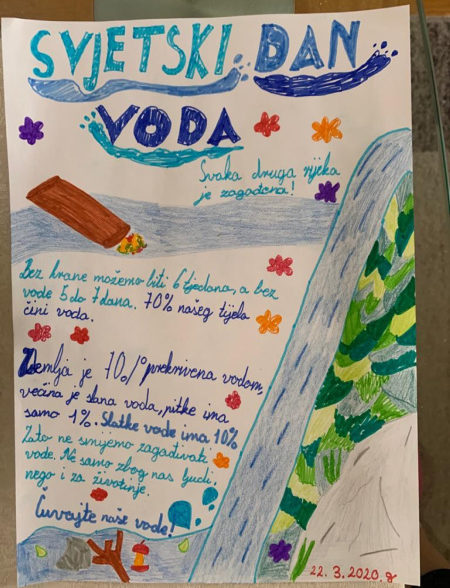 SVJETSKI DAN
VODA
Svaka druga rijeka
je zagađena!
Bez hrane možemo biti 6 tjedana, a bez
vode 5 do 7 dana. 70% našeg tijela
čini voda.
Zemlja je 70% prekrivena vodom,
većina je slana voda, pitke ima
samo 1%. Slatke vode ima 10%
Zato ne smijemo zagađivati
vode. Ne samo zbog nas ljudi,
nego i za životinje.
Čuvajte naše vode!
22. 3. 2020. g